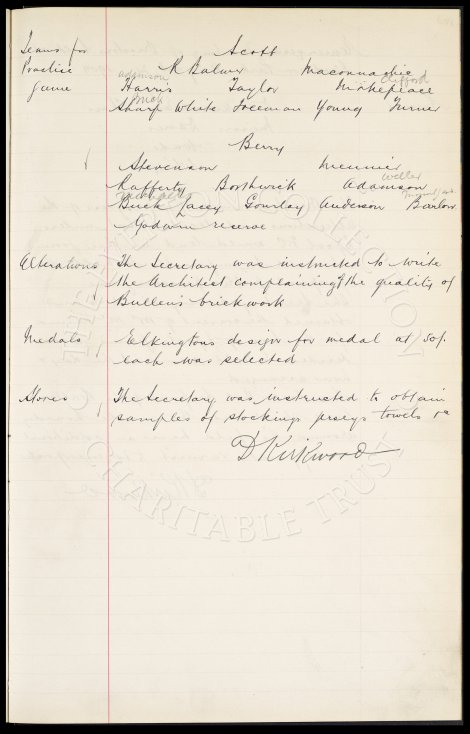 Teams for Scott
Practice R Balmer Maconnachie
adamson Clifford
Game Harris Taylor Makepeace
Buck
Sharp White Freeman Young Turner
Berry
Stevenson Meunier
Weller
Rafferty Borthwick Adamson
Buck Lacey Gourlay Anderson Barlow
Godwin reserve
Alterations The Secretary was instructed to write
the Architect complaining of the quality of
Bullens brickwork
Medals Elkingtons design for medal at 50/-
each was selected
Stores The Secretary was instructed to obtain
samples of stockings jerseys towels &c
D Kirkwood
CHARITABLE TRUST